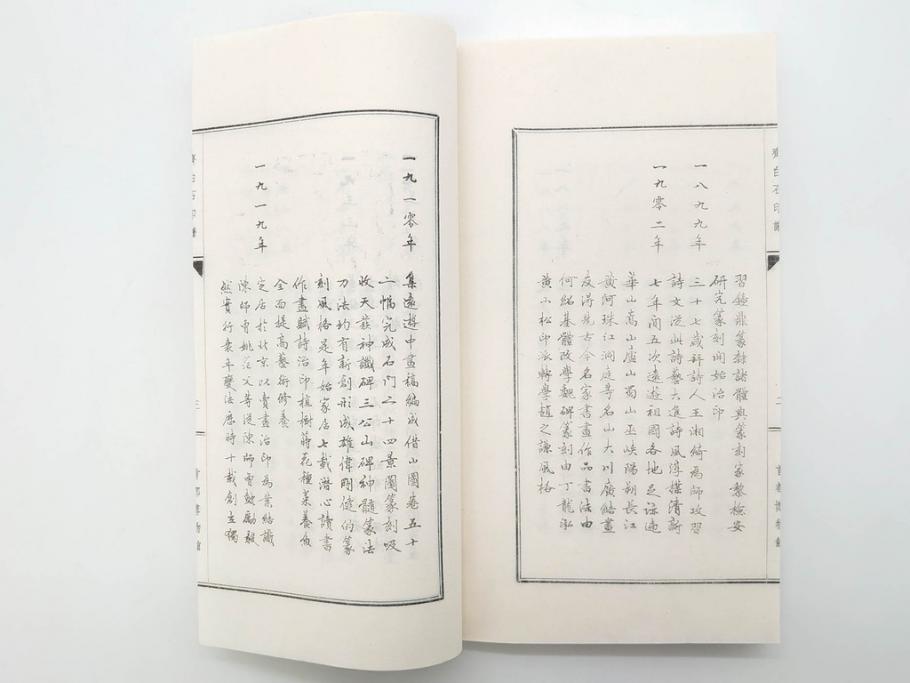 齊白石印譜
二
首都博物館
習鐘鼎篆隸諸體與篆刻家黎檢安
研究篆刻開始治印
一八九九年
三十七歲拜詩人王湘綺為師攻習
詩文從此詩藝大進詩風淳樸清新
一九零二年
七年間五次遠遊祖國各地足跡遍
華山嵩山廬山蜀山巫峽陽朔長江
黃河珠江洞庭等名山大川廣結畫
友得見古今名家書畫作品書法由
何紹基體改學魏碑篆刻由丁龍泓
黃小松印派轉學趙之謙風格
一九一零年
集遠遊中畫稿編成借山圖卷五十
二幅完成石門二十四景圖篆刻吸
收天發神讖碑三公山碑神髓篆法
刀法均有新創形成雄偉剛健的篆
刻風格是年始家居七載潛心讀書
作畫賦詩治印植樹蒔花種菜養魚
全面提高藝術修養
一九一九年
定居於北京以賣畫治印為業結識
陳師曾姚茫父等從陳師曾鼓勵毅
然實行衰年變法歷時十載創立獨
齊白石印譜
三
首都博物館